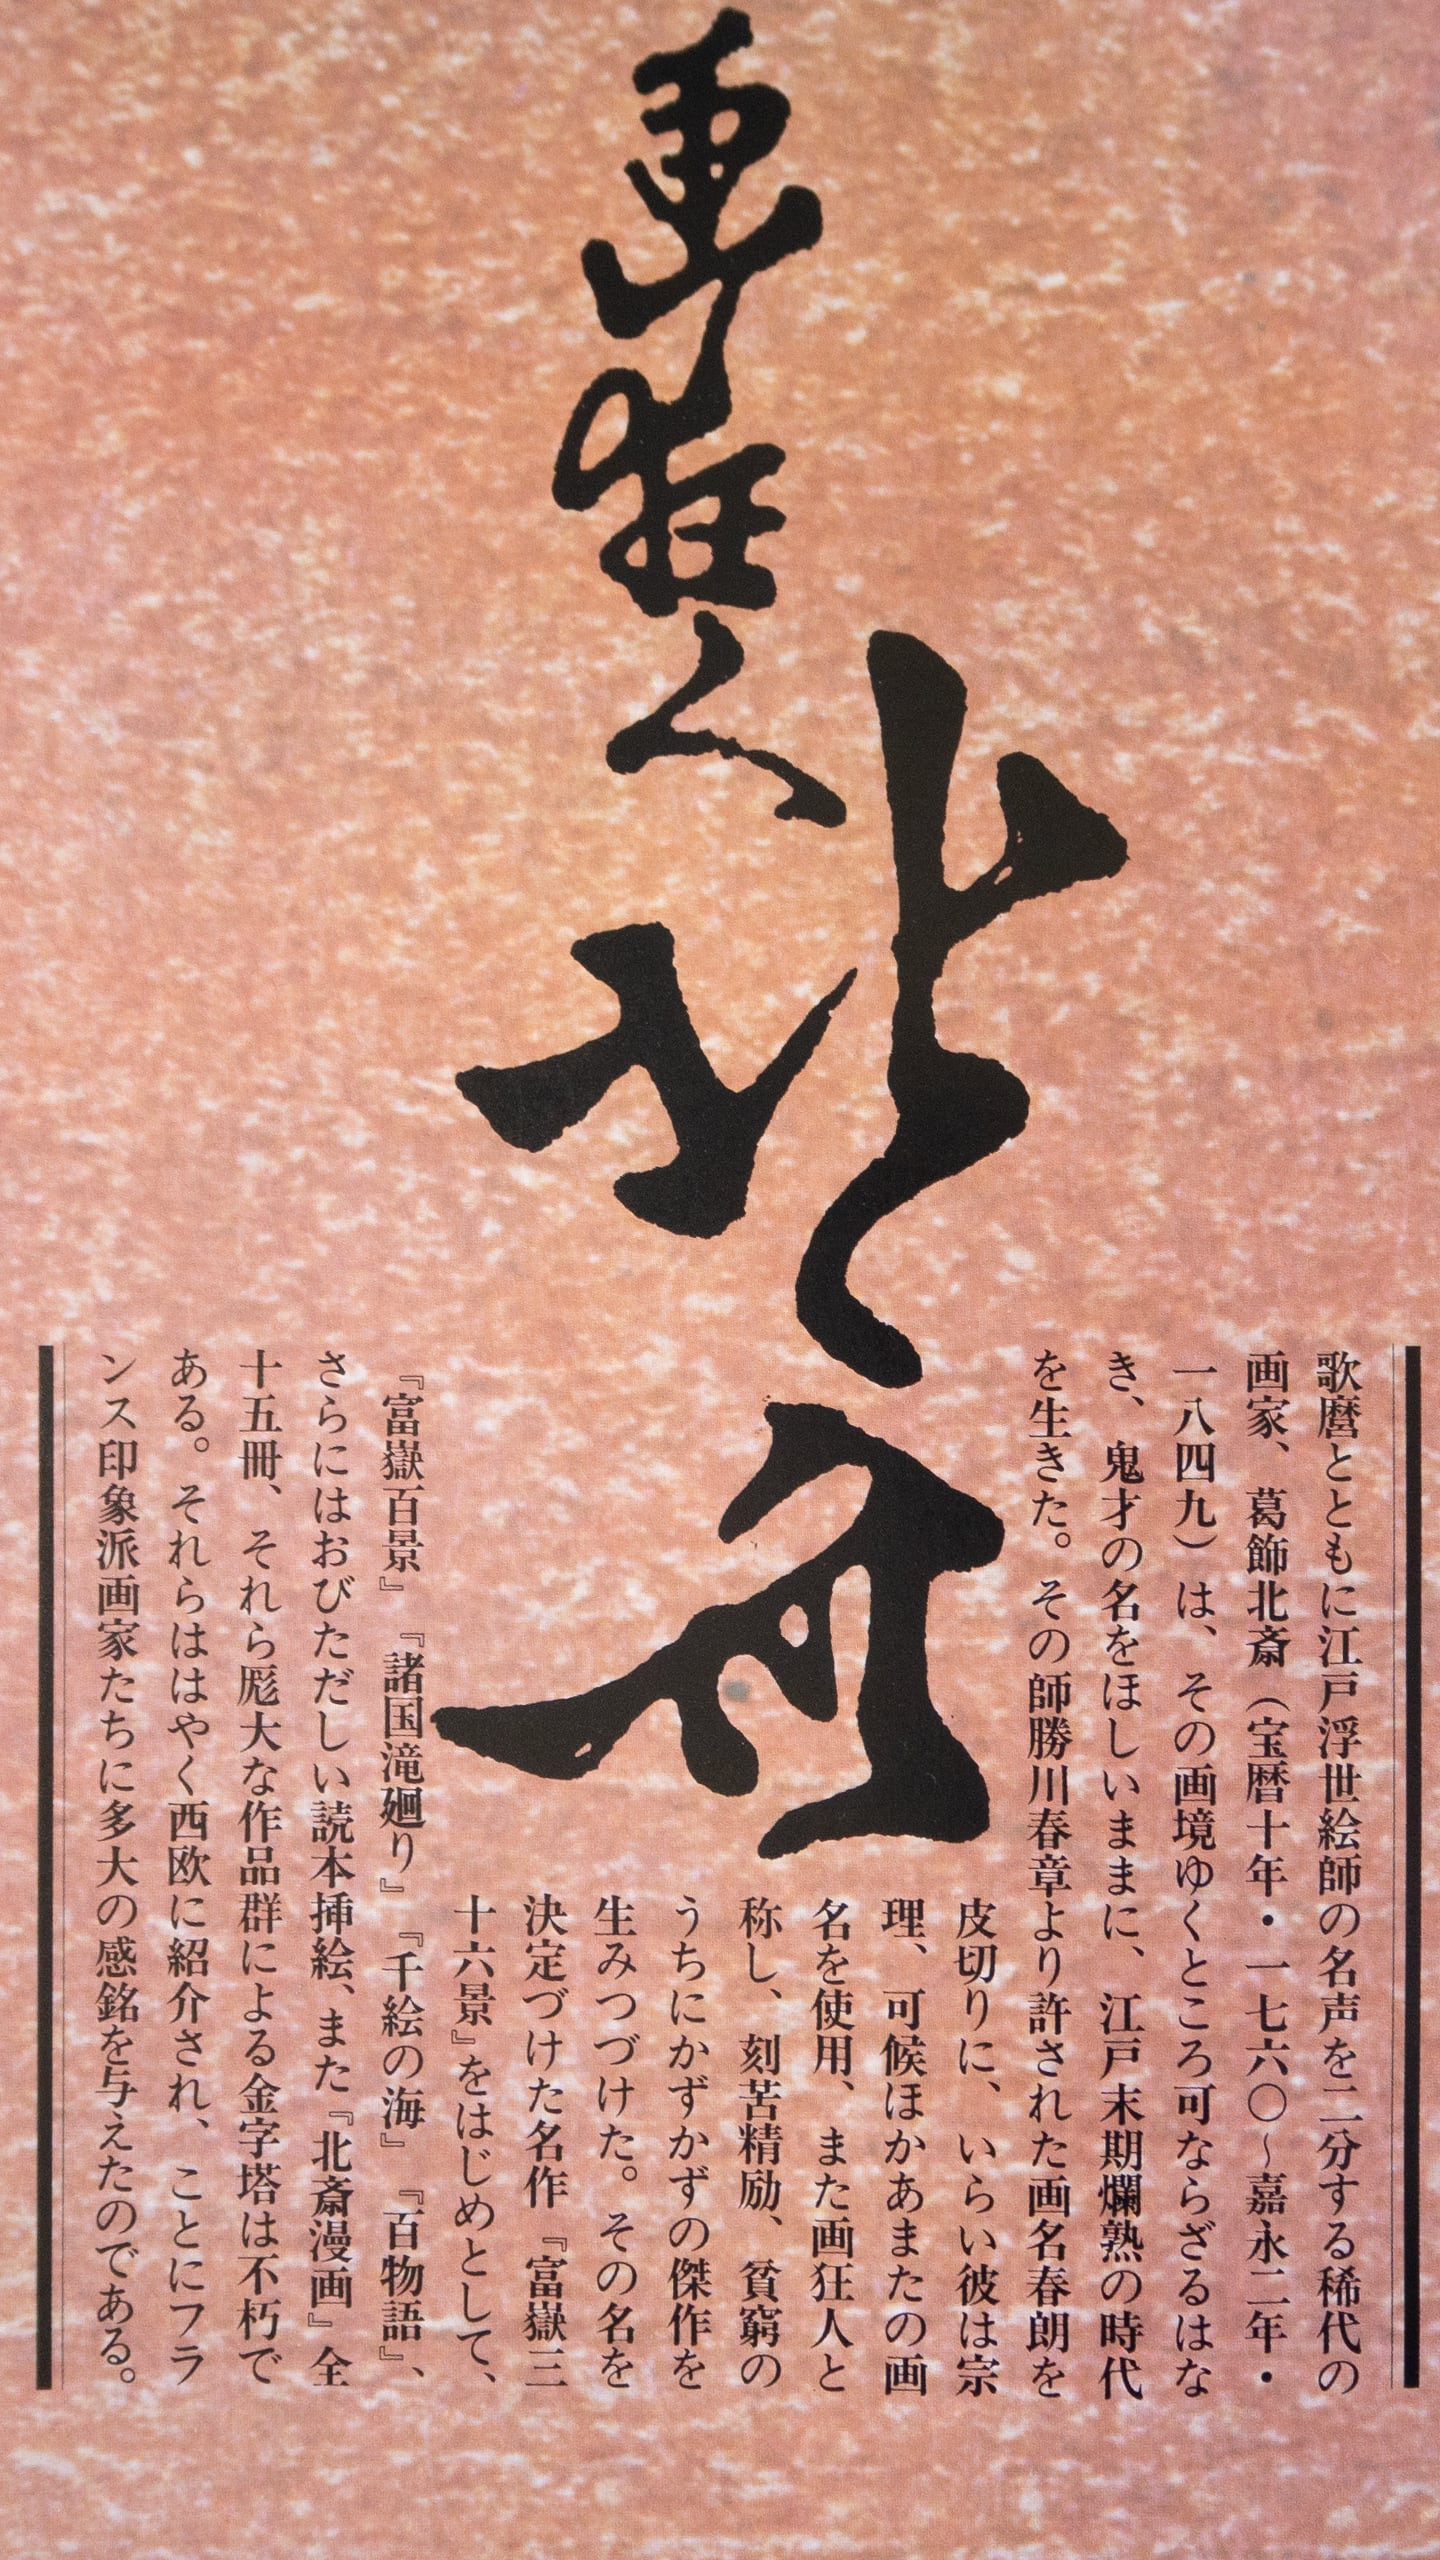 画狂人
北斎
歌麿とともに江戸浮世絵師の名声を二分する稀代の
画家、葛飾北斎（宝暦十年・一七六〇〜嘉永二年・
一八四九）は、その画境ゆくところ可ならざるはな
き、鬼才の名をほしいままに、江戸末期爛熟の時代
を生きた。その師勝川春章より許された画名春朗を
皮切りに、いらい彼は宗
理、可候ほかあまたの画
名を使用、また画狂人と
称し、刻苦精励、貧窮の
うちにかずかずの傑作を
生みつづけた。その名を
決定づけた名作『富嶽三
十六景』をはじめとして、
『富嶽百景』『諸国滝廻り』『千絵の海』『百物語』、
さらにはおびただしい読本挿絵、また『北斎漫画』全
十五冊、それら厖大な作品群による金字塔は不朽で
ある。それらははやく西欧に紹介され、ことにフラ
ンス印象派画家たちに多大の感銘を与えたのである。